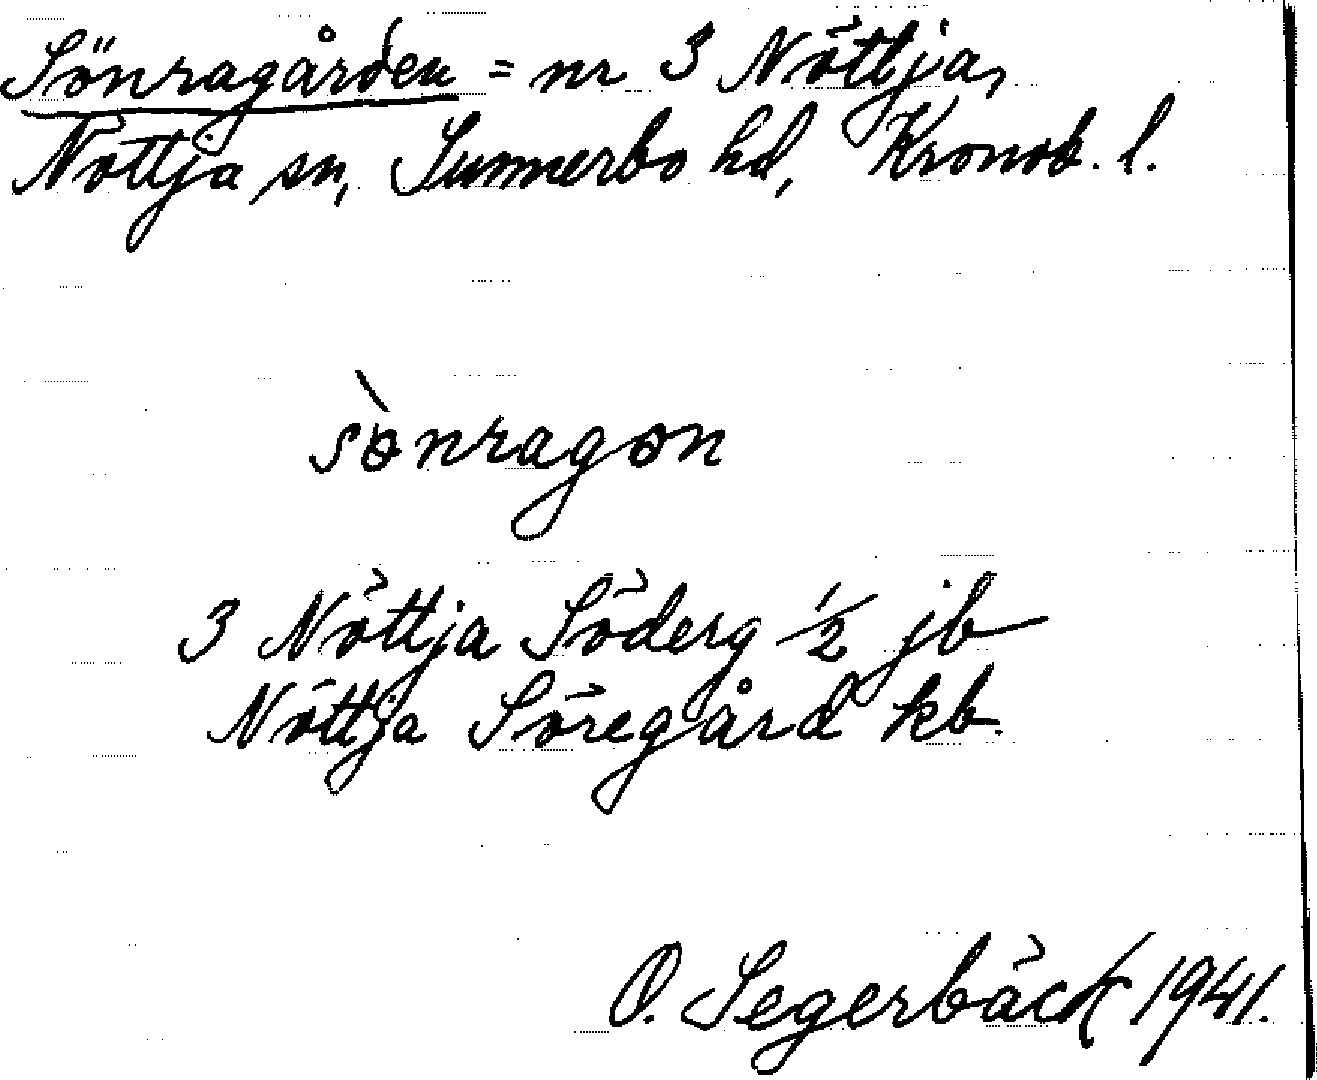 Sönragården = nr 3 Nöttja,
Nöttja sn, Sunnerbo hd, Kronob. l.
sɵ̀nragɵn
3 Nöttja Söderg 1/2 jb
Nöttja Söregård kb.
O. Segerbäck 1941.